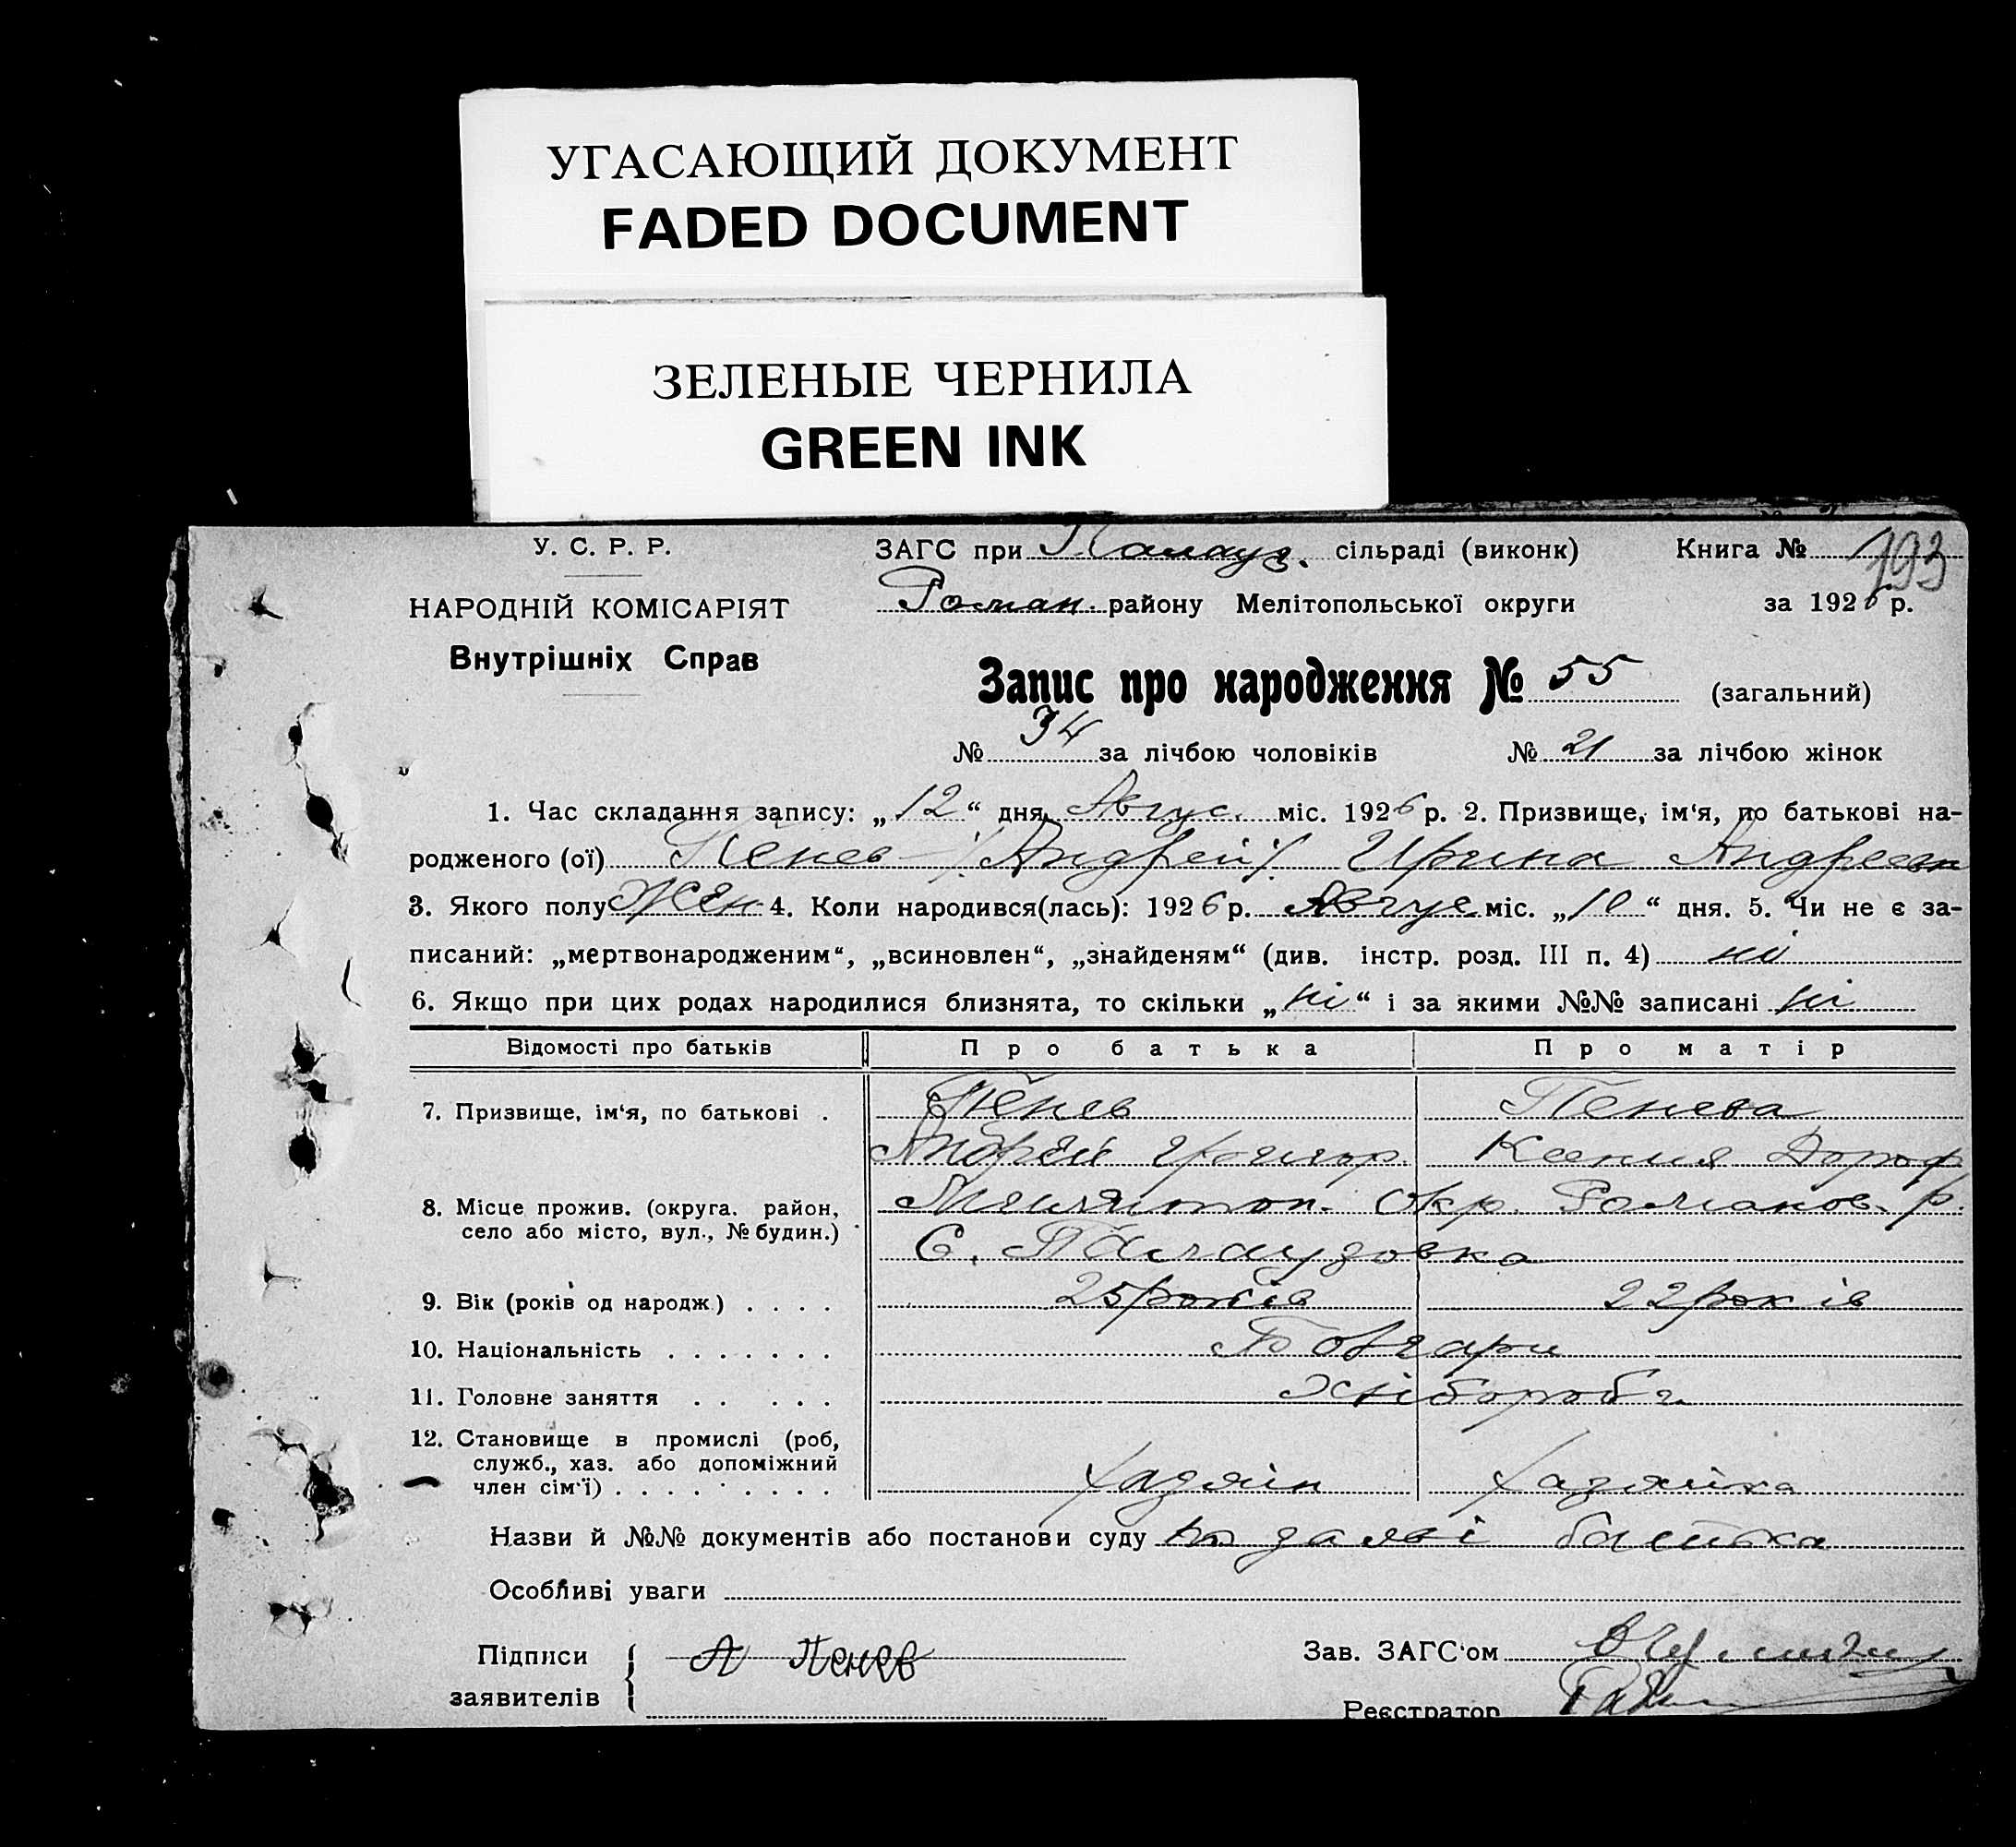 УГАСАЮЩИЙ ДОКУМЕНТ
FADED DOCUMENT
ЗЕЛЕНЫЕ ЧЕРНИЛА
GREEN INK
У. С. Р. Р.
НАРОДНІЙ КОМІСАРІЯТ
Внутрішніх Справ
ЗАГС при Палауз. сільраді (виконк) Книга № 193
Роман. району Мелітопольської округи за 1926 р.
Запис про народження № 55 (загальний)
№ 34 за лічбою чоловіків № 21 за лічбою жінок
1. Час складання запису: „12“ дня Авгус. міс. 1926 р. 2. Призвище, ім‘я, по батькові на-
родженого (ої) Пенев (Андрей) Ирина Андреевн
3. Якого полу Жен. 4. Коли народився(лась): 1926 р. Авгус міс. „10“ дня. 5. Чи не є за-
писаний: „мертвонародженим“, „всиновлен“, „знайденям“ (див. інстр. розд. III п. 4) ні
6. Якщо при цих родах народилися близнята, то скільки „ні“ і за якими №№ записані ні
Відомості про батьків Про батька Про матір
7. Призвище, ім‘я, по батькові . Пенев Пенева
Андрей Григор. Ксения Дороф
8. Місце прожив. (округа. район, село або місто, вул., № будин.) Мелитоп. Окр. Романов. р.
С. Палаузовка
9. Вік (років од народж.) . . . . 25 років 22 років
10. Національність . . . . . . . Бовгари
11. Головне заняття . . . . . Хлібороби
12. Становище в промислі (роб,
служб., хаз. або допоміжний
член сім‘ї) . . . . . . . . . Хазяїн Хазяйка
Назви й №№ документів або постанови суду по заяві батька
Особливі уваги
Підписи заявителів А Пенев
Зав. ЗАГС‘ом
Реєстратор